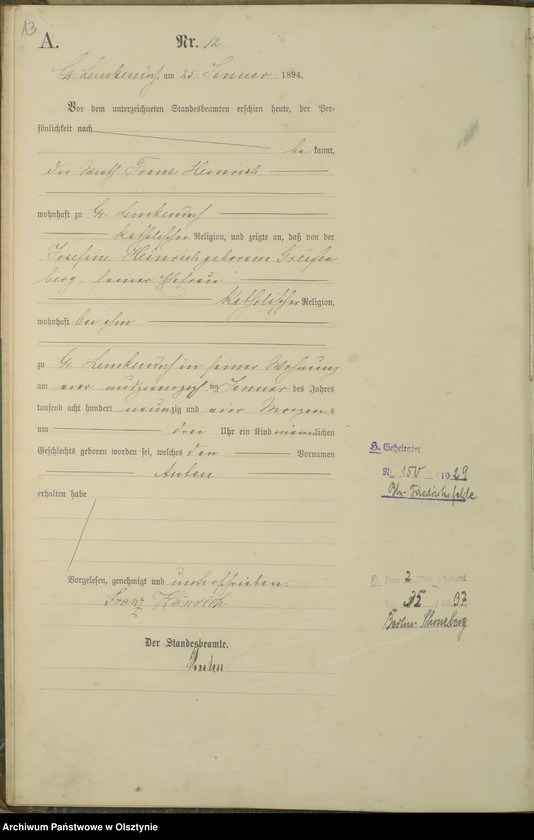 13
A. Nr. 12
Gr. Lemkendorf, am 25 Januar 1894.
Vor dem unterzeichneten Standesbeamten erschien heute, der Per-
sönlichkeit nach
be kannt,
der Wirth Franz Heinrich
wohnhaft zu Gr. Lemkendorf
katholischer Religion, und zeigte an, daß von der
Josefine Heinrich geborene Greifen
berg, seiner Ehefrau
katholischer Religion,
wohnhaft bei ihm
zu Gr. Lemkendorf in seiner Wohnung
am vier und zwanzigsten Januar des Jahres
tausend acht hundert neunzig und vier Morgens
um drei Uhr ein Kind männlichen
Geschlechts geboren worden sei, welches den Vornamen
Anton
erhalten habe
Vorgelesen, genehmigt und unterschrieben.
Franz Hänrich
Der Standesbeamte.
Geheiratet
Nr. 150 / 1929
Bln-Friedrichsfelde
2
35 / 1937
Berlin-Schöneberg
Archiwum Państwowe w Olsztynie